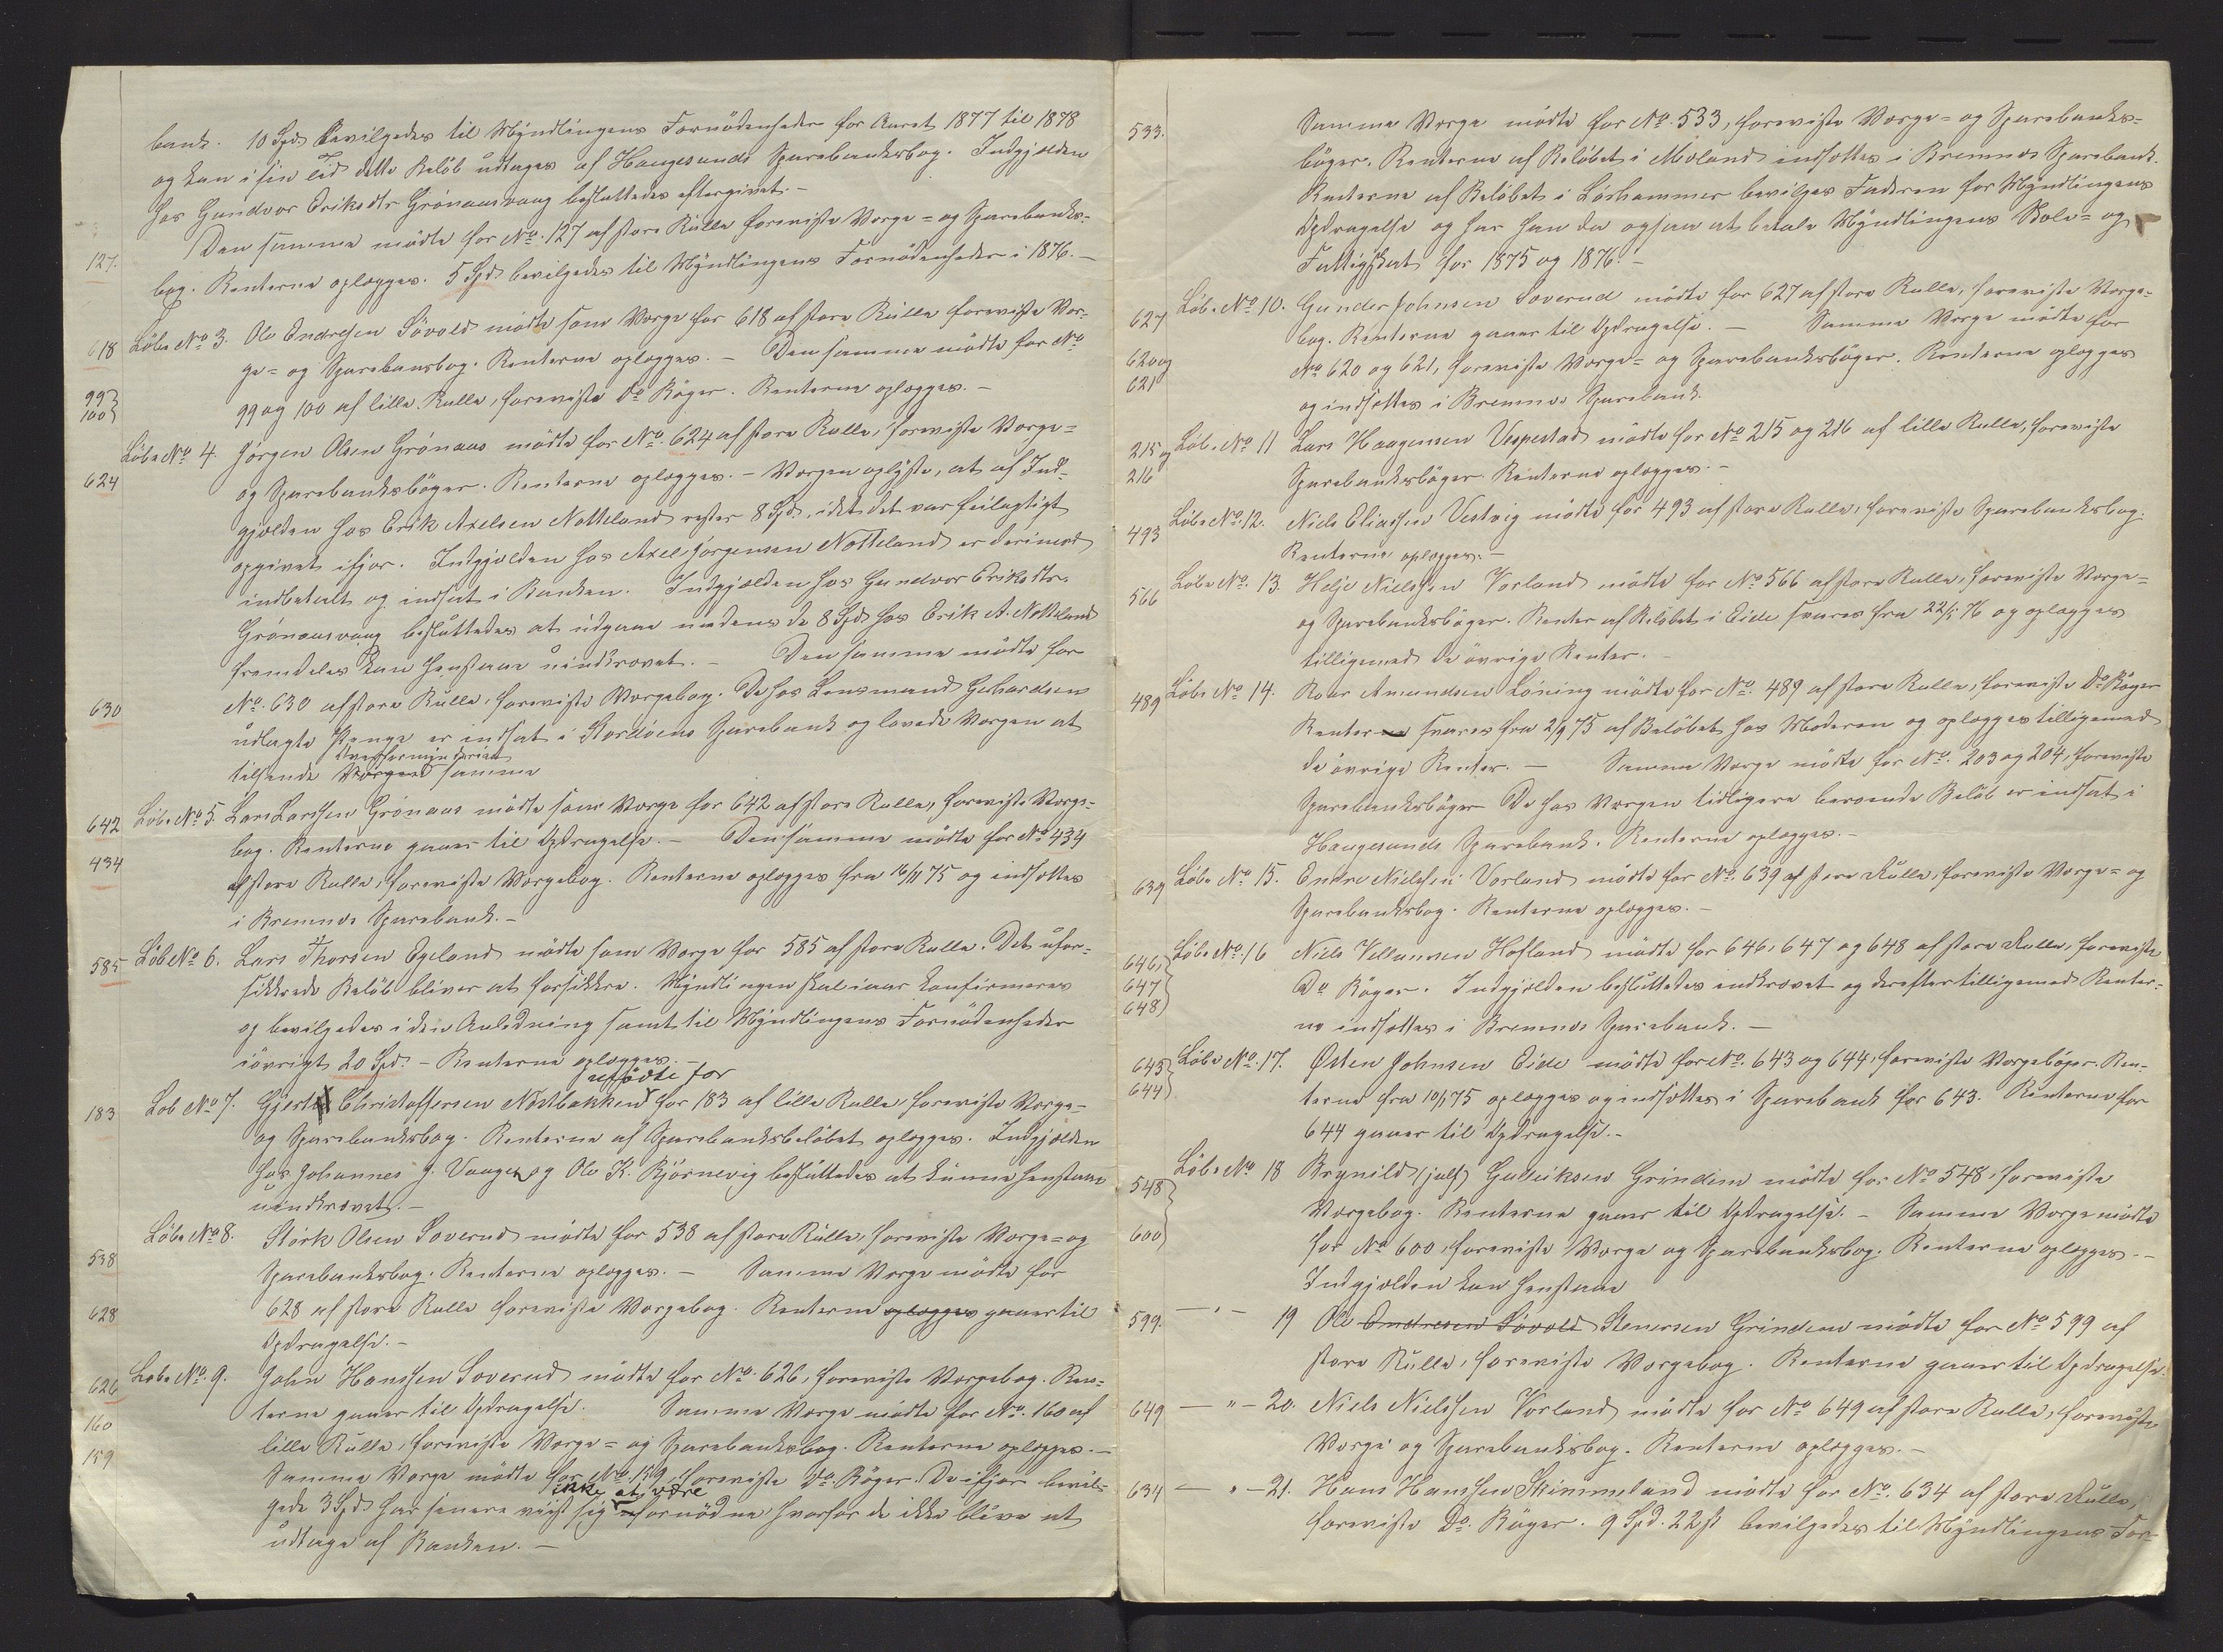 bank. 10 Spd. bevilgedes til Myndlingens Fornödenheder for Aaret 1877 til 1878
og kan i sin Tid dette Belöb udtages af Haugesunds Sparebanksbog. Indgjælden
hos Gundvor Eriksdtr Grönaasvaag besluttedes eftergivet.-
127. Den samme mödte for No. 127 af store Rulle foreviste Vorge- og Sparebanks-
bog. Renterne oplægges. 5 Spd bevilgedes til Myndlingens Fornödenheder i 1876.-
618 Löbe No 3. Ole Endresen Tövold mödte som Vorge for 618 af store Rulle foreviste Vor-
ge- og Sparebanksbog. Renterne oplægges. - Den samme mödte for No
99 100 99 og 100 af lille Rulle, foreviste Do Böger. Renterne oplægges.-
624 Löbe No 4. Jörgen Olsen Grönaas mödte for No. 624 af store Rulle, foreviste Vorge-
og Sparebanksböger. Renterne oplægges. - Vorgen oplyste, at af Ind-
gjælden hos Erik Axelsen Notteland rester 8 Spd., idet det var feilagtigt
opgivet ifjor. Indgjælden hos Axel Jörgensen Notteland er derimod
indbetalt og indsat i Banken. Indgjælden hos Gundvor Eriksdtr.
Grönaasvaag besluttedes at udgaae medens de 8 Spd hos Erik A. Notteland
fremdeles kan henstaae uindkrævet. - Den samme mödte for
630 No. 630 af store Rulle, foreviste Vorgebog. De hos Lensmand Gerhardsen
udlagte Penge er indsat i Stordöens Sparebank og lovede Vorgen at
Overformynderiet
tilsende Vorgen samme
642 Löbe No 5. Lars Larssen Grönaas mödte som Vorge for 642 af store Rulle, foreviste Vorge-
bog. Renterne gaaer til Opdragelse. - Den samme mödte for No 434
434 af store Rulle, foreviste Vorgebog. Renterne oplægges fra 16/11 75 og indsættes
i Bremnes Sparebank.-
585 Löbe No 6. Lars Thorsen Egeland mödte som Vorge for 585 af store Rulle. Det ufor-
sikkrede Belöb bliver at forsikkre. Myndlingen skal iaar konfirmeres
og bevilgedes i den Anledning samt til Myndlingens Fornödenheder
iövrigt 20 Spd. - Renterne oplægges.-
mödte for
183 Lob No 7. Gjert Christoffersen Nordbakken for 183 af lille Rulle, foreviste Vorge-
og Sparebanksbog. Renterne af Sparebanksbelöbet oplægges. Indgjælden
hos Johannes J. Vaage og Ole K. Björnevig besluttedes at kunne henstaae
uindkrævet.-
538 Löbe No 8. Störk Olsen Soverud mödte for 538 af store Rulle, foreviste Vorge- og
Sparebanksbog. Renterne oplægges. - Samme Vorge mödte for
628 628 af store Rulle foreviste Vorgebog. Renterne oplægges gaaer til
Opdragelse.-
626 Löbe No. 9. John Hanssen Soverud mödte for No. 626, foreviste Vorgebog. Ren-
terne gaaer til Opdragelse. Samme Vorge mödte for No. 160 af
160 lille Rulle, foreviste Vorge- og Sparebanksbog. Renterne oplægges.-
159 Samme Vorge mödte for No. 159, foreviste Do. Böger. De ifjor bevil-
ikke at være
gede 3 Spd har senere viist sig fornödne hvorfor de ikke blive at
udtage af Banken.-
533. Samme Vorge mödte for No. 533, foreviste Vorge- og Sparebanks-
böger. Renterne af Belöbet i Moland indsættes i Bremnes Sparebank.
Renterne af Belöbet i Löshammer bevilges Faderen for Myndlingens
Opdragelse og har han da ogsaa at betale Myndlingens Skole- og
Fattigskat for 1875 og 1876.-
627 Löbe No 10. Gunder Johnsen Soverud mödte for 627 af store Rulle, foreviste Vorge-
bog. Renterne gaaer til Opdragelse. - Samme Vorge mödte for
620 og 621 No 620 og 621, foreviste Vorge- og Sparebanksböger. Renterne oplægges
og indsættes i Bremnes Sparebank.
215 og 216 Löbe No 11 Lars Haagensen Vespestad mödte for No 215 og 216 af lille Rulle, foreviste
Sparebanksböger. Renterne oplægges.-
493 Löbe No. 12. Niels Eliassen Vestvig mödte for 493 af store Rulle, foreviste Sparebanksbog.
Renterne oplægges.-
566 Löbe No. 13. Helje Nielssen Vorland mödte for No 566 af store Rulle, foreviste Vorge-
og Sparebanksböger. Renter af Belöbet i Eide svares fra 22/5 76 og oplægges
tilligemed de övrige Renter.-
489 Löbe No 14. Roar Amundsen Löning mödte for No. 489 af store Rulle, foreviste Do Böger
Renterne svares fra 2/9 75 af Belöbet hos Moderen og oplægges tilligemed
de övrige Renter. - Samme Vorge mödte for No. 203 og 204, foreviste
Sparebanksböger De hos Vorgen tidligere beroende Belöb er indsat i
Haugesunds Sparebank. Renterne oplægges.-
639 Löbe No 15. Endre Nielssen Vorland mödte for No. 639 af store Rulle, foreviste Vorge- og
Sparebanksbog. Renterne oplægges.-
646, 647 648 Löbe No. 16 Niels Villumsen Hofland mödte for 646, 647 og 648 af store Rulle, foreviste
Do Böger. Indgjælden besluttedes indkrævet og derefter tilligemed Renter-
ne indsættes i Bremnes Sparebank.-
643 644 Löbe No. 17. Østen Johnsen Eide mödte for No. 643 og 644, foreviste Vorgeböger. Ren-
terne fra 10/1 75 oplægges og indsættes i Sparebank for 643. Renterne for
644 gaaer til Opdragelse.-
548 Löbe No 18 Brynild (julf) Gulleiksen Grindem mödte for No 548, foreviste
Vorgebog. Renterne gaaer til Opdragelse. - Samme Vorge mödte
600 for No 600, foreviste Vorge og Sparebanksbog. Renterne oplægges.-
Indgjælden kan henstaae
599. - " - 19 Ole Endresen Tövold Stenersen Grindem mödte for No 599 af
store Rulle, foreviste Vorgebog. Renterne gaaer til Opdragelse.
649 - " - 20. Niels Nielssen Vorland mödte for No 649 af store Rulle, foreviste
Vorge og Sparebanksbog. Renterne oplægges.-
634 - " - 21. Hans Hanssen Skimmeland mödte for No. 634 af store Rulle,
foreviste Do. Böger. 9 Spd. 22 s bevilgedes til Myndlingens For-